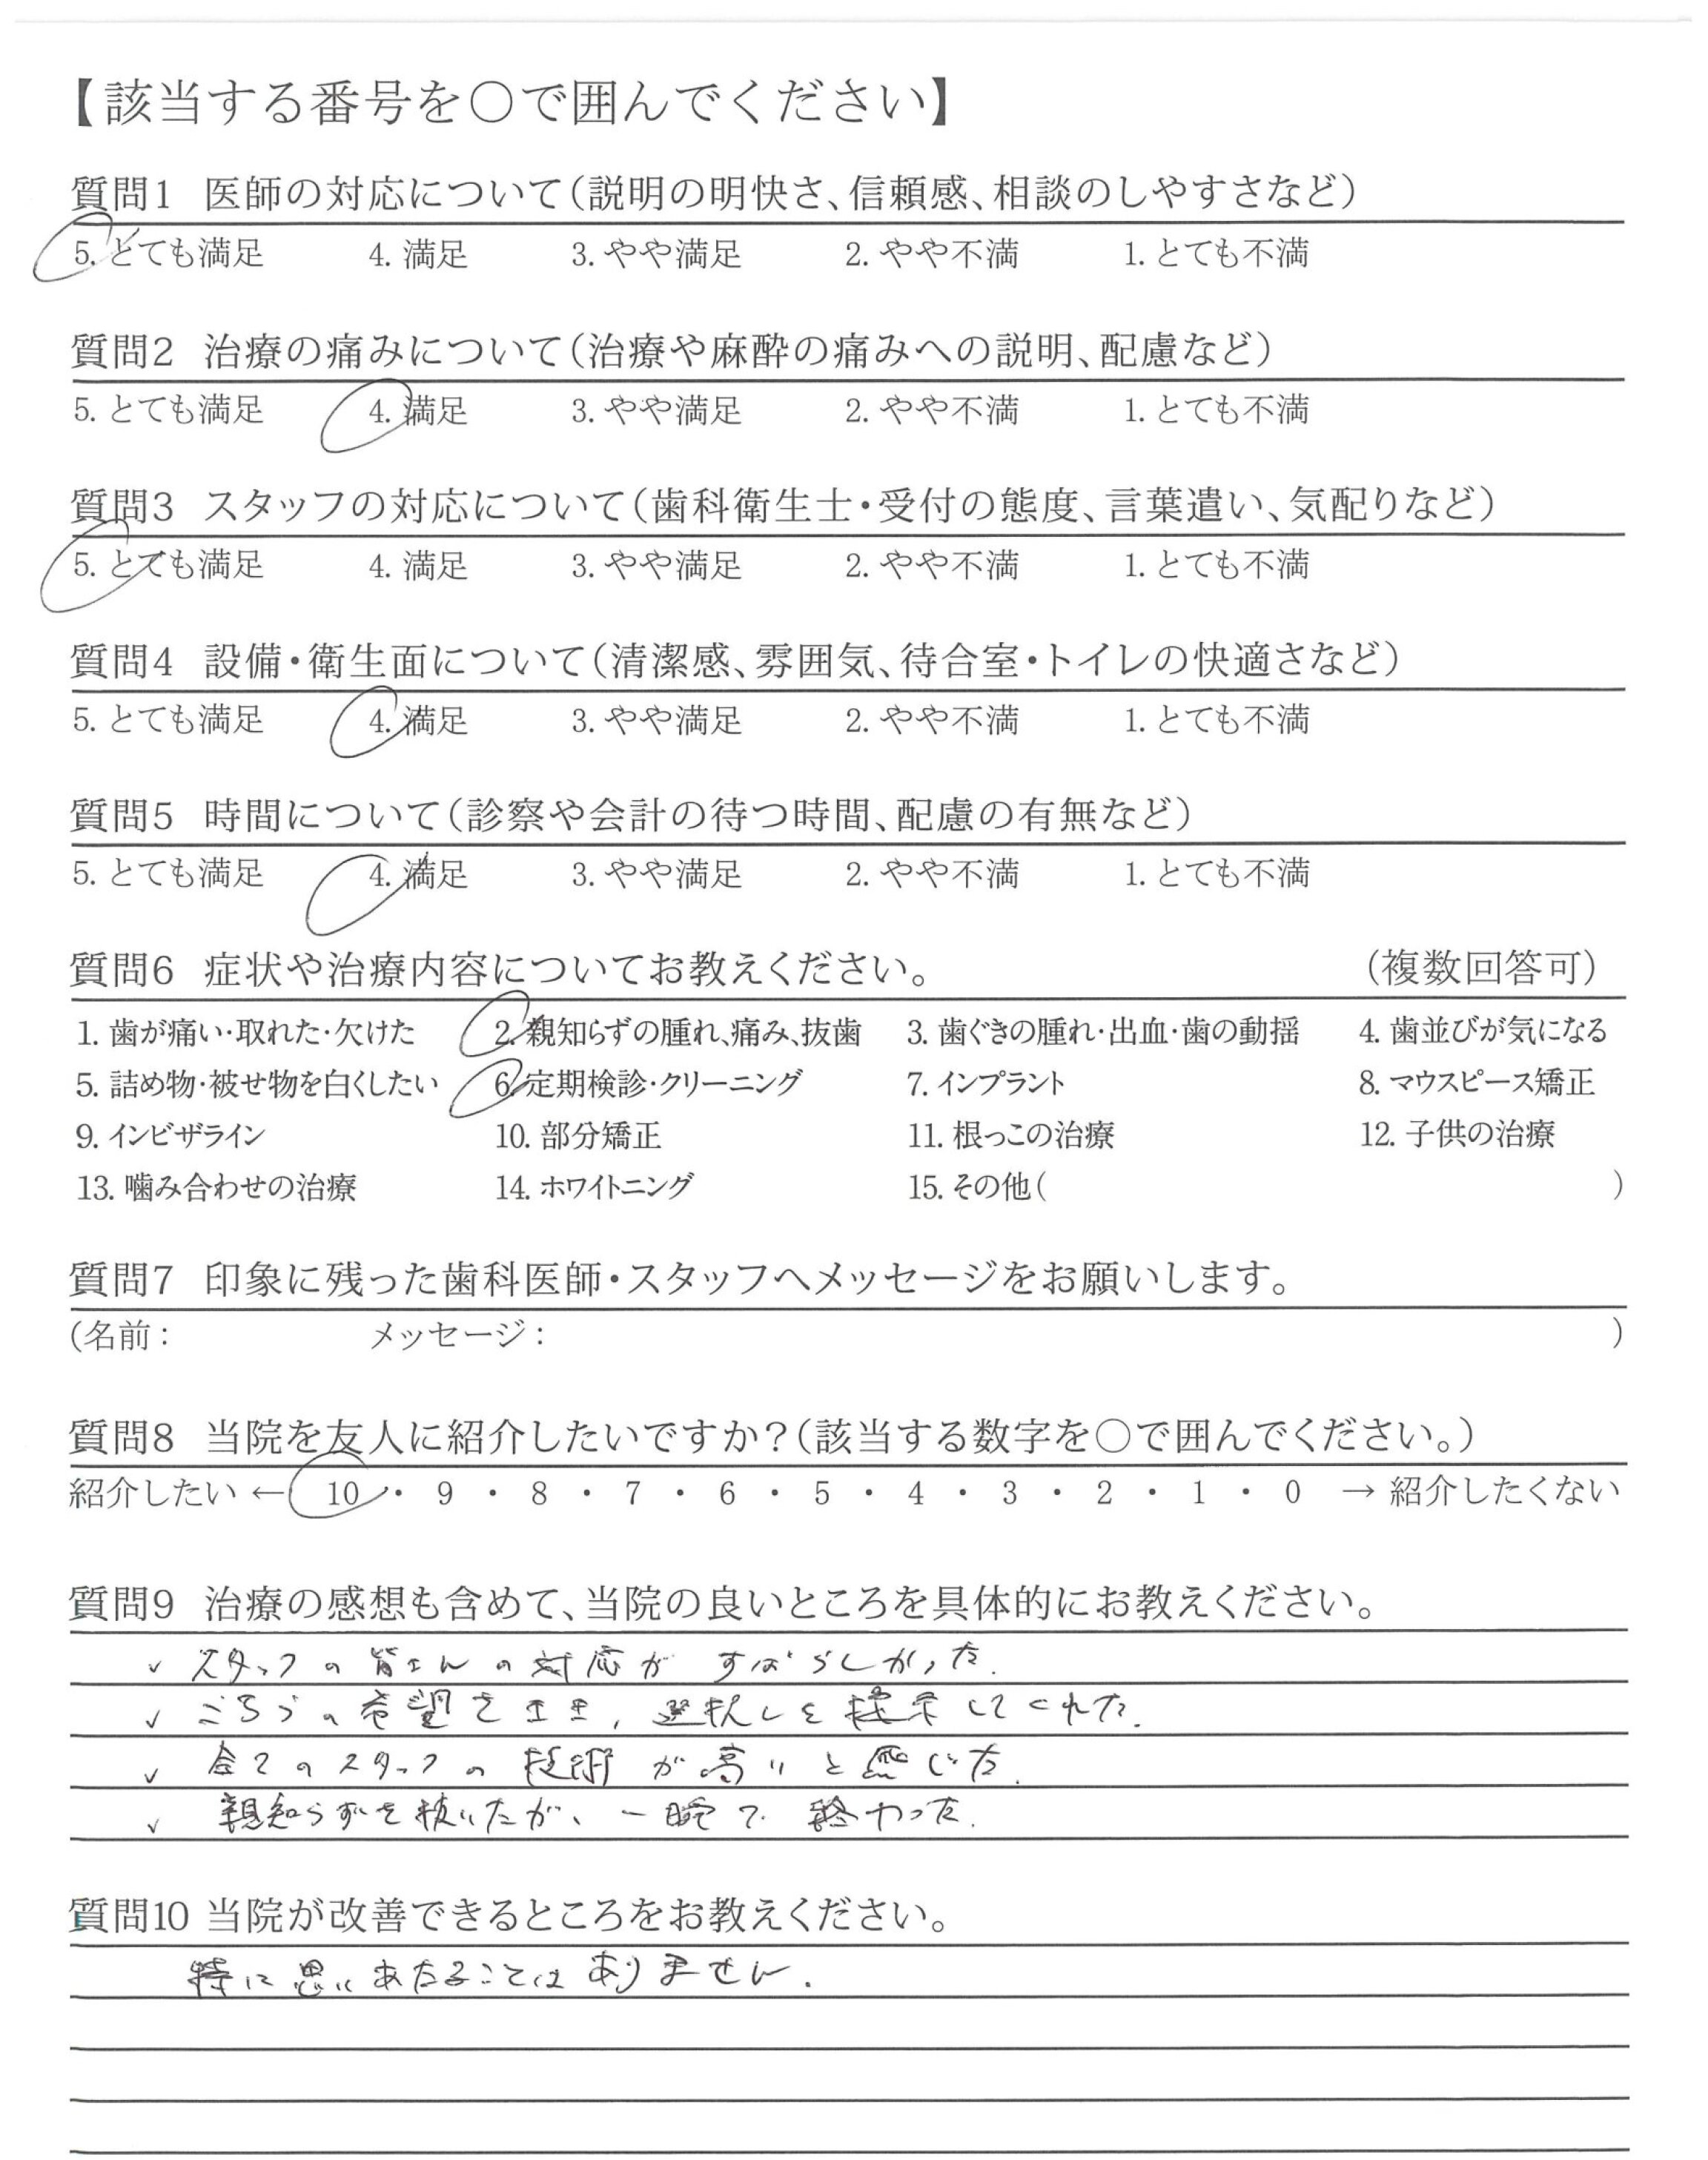 【該当する番号を○で囲んでください】
質問1 医師の対応について(説明の明快さ、信頼感、相談のしやすさなど)
5. とても満足 4. 満足 3. やや満足 2. やや不満 1. とても不満
質問2 治療の痛みについて(治療や麻酔の痛みへの説明、配慮など)
5. とても満足 4. 満足 3. やや満足 2. やや不満 1. とても不満
質問3 スタッフの対応について(歯科衛生士・受付の態度、言葉遣い、気配りなど)
5. とても満足 4. 満足 3. やや満足 2. やや不満 1. とても不満
質問4 設備・衛生面について(清潔感、雰囲気、待合室・トイレの快適さなど)
5. とても満足 4. 満足 3. やや満足 2. やや不満 1. とても不満
質問5 時間について(診察や会計の待つ時間、配慮の有無など)
5. とても満足 4. 満足 3. やや満足 2. やや不満 1. とても不満
質問6 症状や治療内容についてお教えください。 (複数回答可)
1. 歯が痛い・取れた・欠けた 2. 親知らずの腫れ、痛み、抜歯 3. 歯ぐきの腫れ・出血・歯の動揺 4. 歯並びが気になる
5. 詰め物・被せ物を白くしたい 6. 定期検診・クリーニング 7. インプラント 8. マウスピース矯正
9. インビザライン 10. 部分矯正 11. 根っこの治療 12. 子供の治療
13. 噛み合わせの治療 14. ホワイトニング 15. その他( )
質問7 印象に残った歯科医師・スタッフへメッセージをお願いします。
(名前: メッセージ: )
質問8 当院を友人に紹介したいですか?(該当する数字を○で囲んでください。)
紹介したい ← 10 ・ 9 ・ 8 ・ 7 ・ 6 ・ 5 ・ 4 ・ 3 ・ 2 ・ 1 ・ 0 → 紹介したくない
質問9 治療の感想も含めて、当院の良いところを具体的にお教えください。
✓ スタッフの皆さんの対応がすばらしかった.
✓ こちらの希望をきき, 選択しを提示してくれた.
✓ 全てのスタッフの技術が高いと感じた.
✓ 親知らずを抜いたが、一瞬で終わった.
質問10 当院が改善できるところをお教えください。
特に思いあたることはありません.